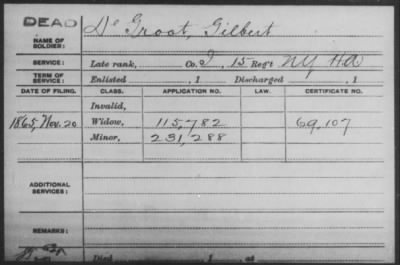 DEAD
De Groot, Gilbert
NAME OF SOLDIER:
SERVICE: Late rank, Co. I, 15 Reg't NY HA
TERM OF SERVICE: Enlisted , 1 Discharged , 1
DATE OF FILING. CLASS. APPLICATION NO. LAW. CERTIFICATE NO.
Invalid,
1865, Nov. 20 Widow, 115,782 69,107
Minor, 231,288
ADDITIONAL SERVICES:
REMARKS:
Died , 1 , at